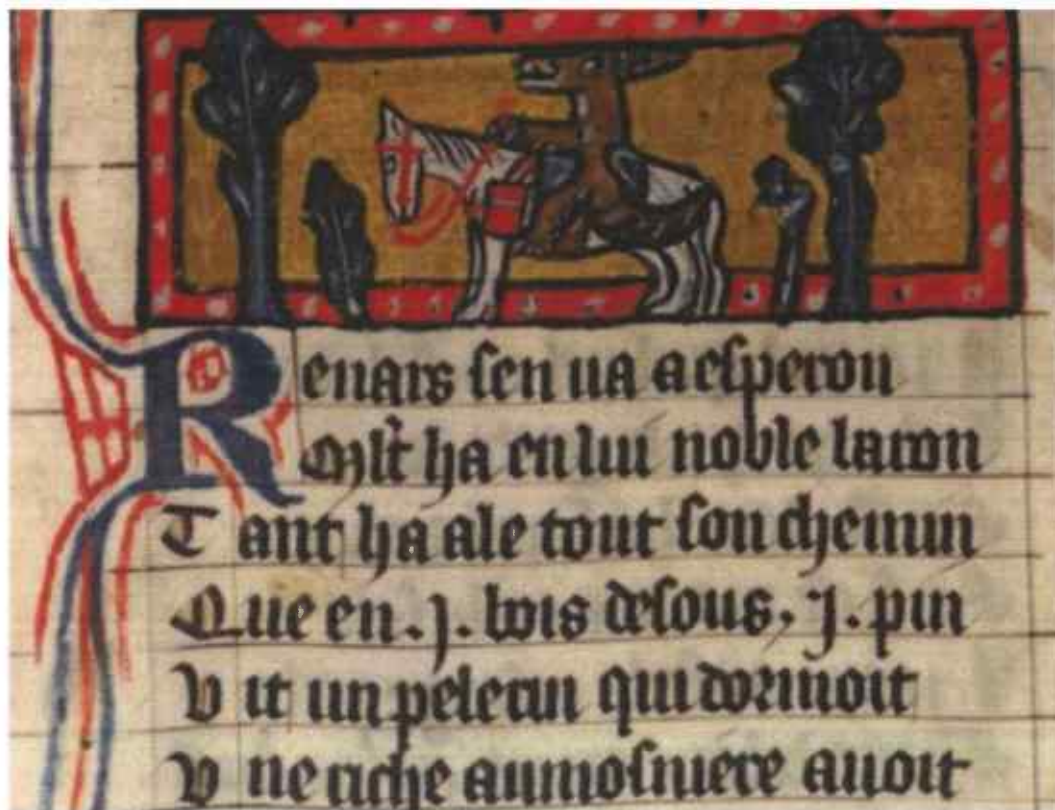 Renars sen ua a esperon
Mlt ha en lui noble laron
Tant ha ale tout son chemin
Que en .j. bois desous .j. pin
Vit un pelerin qui dormoit
Vne riche aumosniere auoit